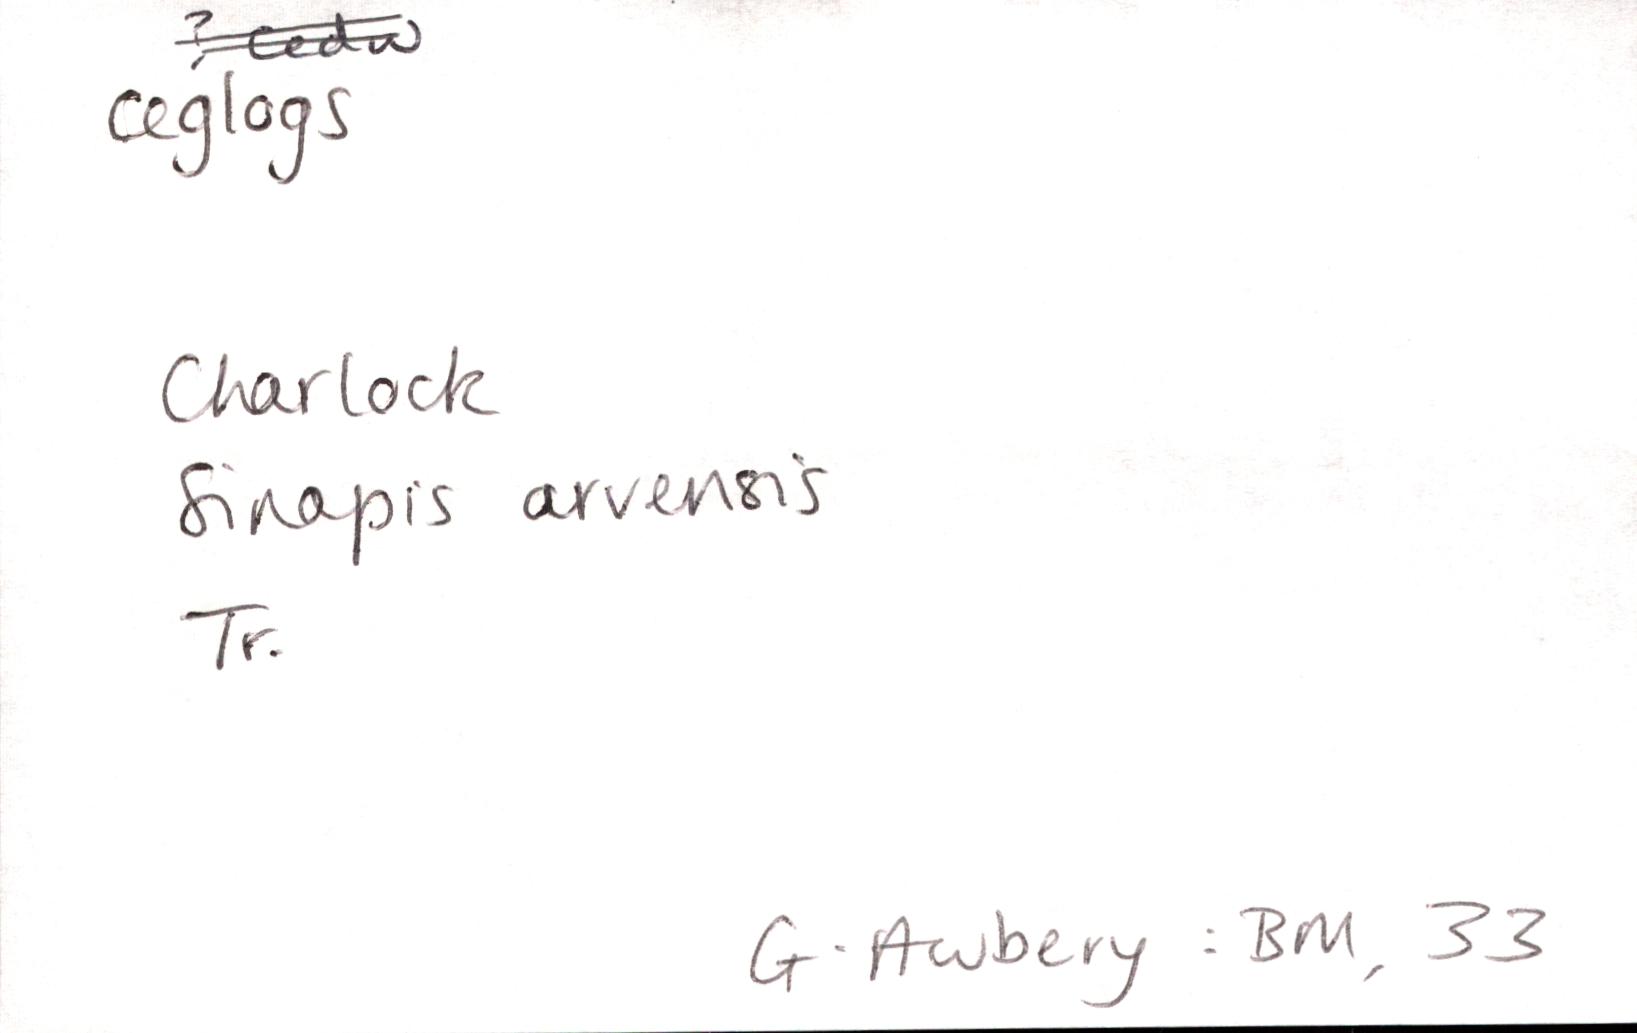 ? cedw
ceglogs
Charlock
Sinapis arvensis
Tr.
G. Awbery : BM, 33